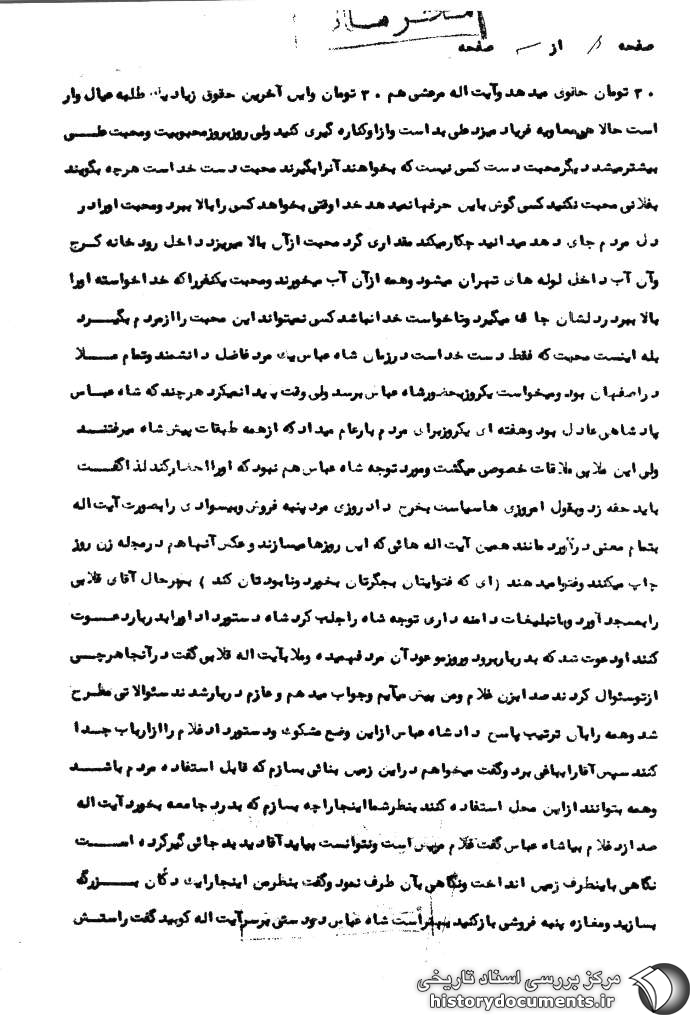 صفحه از صفحه
۳۰ تومان حقوق میدهد وآیت اله مرعشی هم ۳۰ تومان واین آخرین حقوق زیاد طلبه عیال وار
است حالا هی معاویه فریاد میزد علی بد است وازاوکناره گیری کنید ولی روزبروز محبوبیت ومحبت علی
بیشترمیشد دیگر محبت دست کسی نیست که بخواهند آنرابگیرند محبت دست خداست هرچه بگویند
بفلانی محبت نکنید کسی گوش باین حرفهانمیدهد خداوقتی بخواهد کسی رابالا ببرد ومحبت اورادر
دل مردم جای دهد میدانید چکارمیکند مقداری گرد محبت ازآن بالا میریزد داخل رودخانه کرج
وآن آب داخل لوله های تهران میشود وهمه ازآن آب میخورند ومحبت یکنفرراکه خداخواسته اورا
بالا ببرد دردلشان جا میگیرد وتاخواست خدانباشد کسی نمیتواند این محبت راازمردم بگیرد
بله اینست محبت که فقط دست خداست درزمان شاه عباس یک مرد فاضل دانشمند وتمام ملا
دراصفهان بود ومیخواست یکروزبحضورشاه عباس برسد ولی وقت پیدانمیکرد هرچند که شاه عباس
پادشاهی عادل بود وهفته ای یکروزبرای مردم بارعام میداد که ازهمه طبقات پیش شاه میرفتند
ولی این ملابی ملاقات خصوصی میگشت ومورد توجه شاه عباس هم نبود که اورااحضارکند لذاگفت
باید حقه زد وبقول امروزی هاسیاست بخرج داد روزی مرد پنبه فروش وبیسوادی رابصورت آیت اله
بتمام معنی درآورد مانند همین آیت اله هائی که این روزهامیسازند وعکس آنهاهم درمجله زن روز
چاپ میکنند وفتوامیدهند (ای که فتوایتان بجگرتان بخورد ونابودتان کند ) بهرحال آقای قلابی
رابمسجد آورد وباتبلیغات دامنه داری توجه شاه راجلب کرد شاه دستورداد اورابدربار دعوت
کنند اودعوت شد که بدربار برود وروزموعود آن مرد فهمیده وملا بآیت اله قلابی گفت درآنجا هرچی
ازتوسئوال کردند صدابزن غلام ومن پیش میآیم وجواب میدهم و عازم دربارشدند سئوالاتی مطرح
شد وهمه رابآن ترتیب پاسخ داد شاه عباس ازاین وضع مشکوک ودستورداد غلام راازارباب جدا
کنند سپس آقارابباغی برد وگفت میخواهم دراین زمین بنائی بسازم که قابل استفاده مردم باشد
وهمه بتوانند ازاین محل استفاده کنند بنظرشما اینجاراچه بسازم که بدرد جامعه بخورد آیت اله
صدازد غلام بیاشاه عباس گفت غلام مریض است ونتوانست بیاید آقادید بد جائی گیرکرده است
نگاهی باینطرف زمین انداخت ونگاهی بآن طرف نمود وگفت بنظرمن اینجارایک دکان بزرگ
بسازید ومغازه پنبه فروشی بازکنید بهتراست شاه عباس دودستی برسرآیت اله کوبید گفت راستش
مرکز بررسی اسناد تاریخی
historydocuments.ir